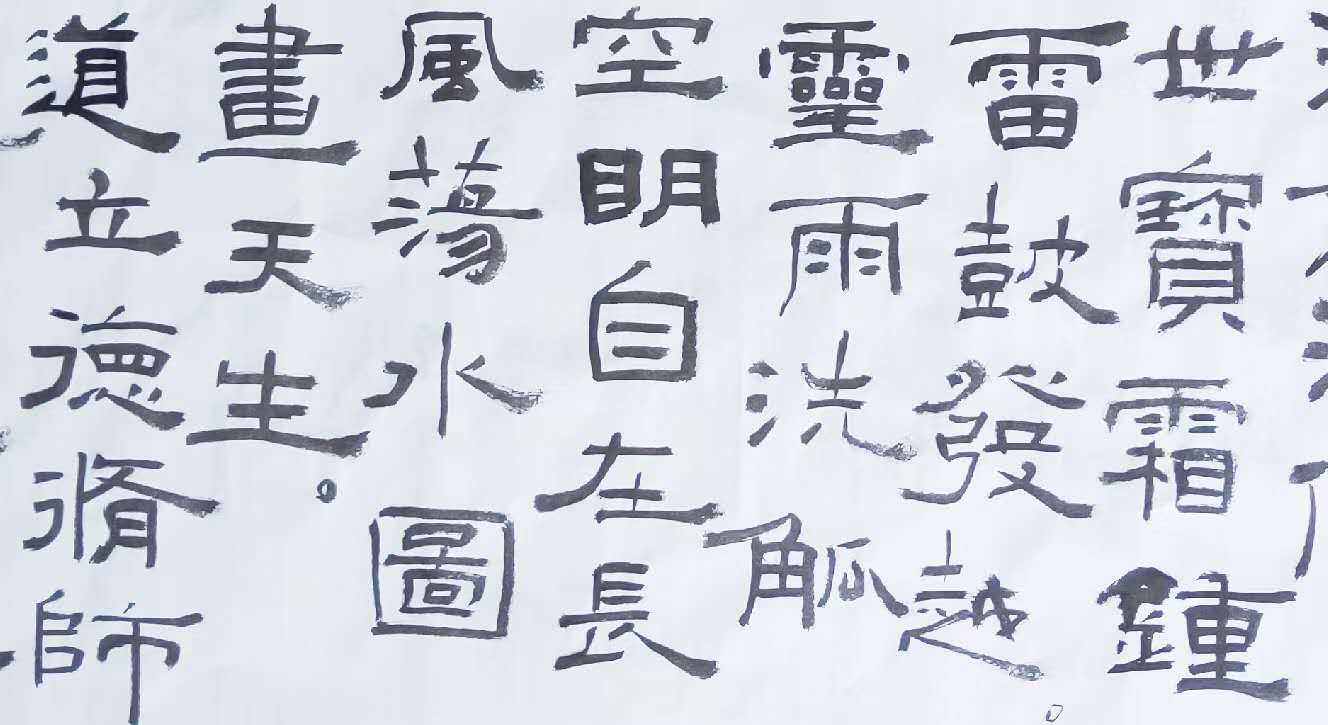 世寶霜鍾
雷鼓發越
靈雨洗觚
空明自在長
風蕩水圖
畫天生
道立德脩師